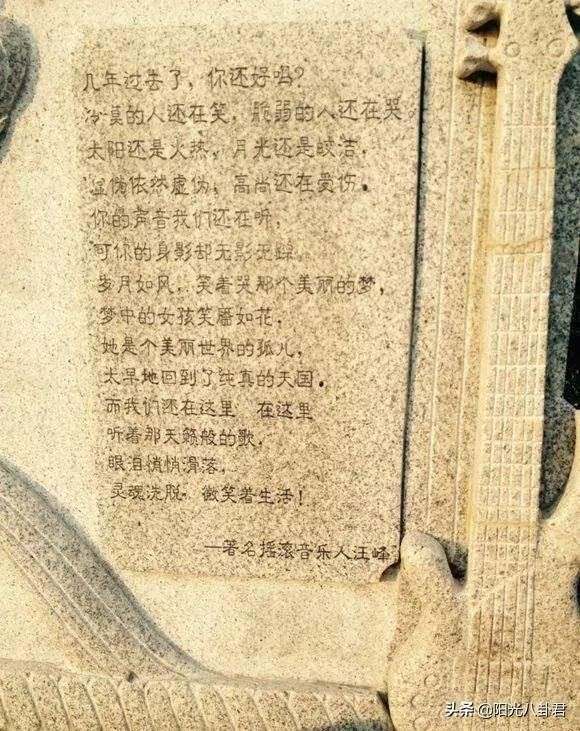 几年过去了，你还好吗？
冷漠的人还在笑，脆弱的人还在哭
太阳还是火热，月光还是皎洁，
虚伪依然虚伪，高尚还在受伤。
你的声音我们还在听，
可你的身影却无影无踪。
岁月如风，笑着哭那个美丽的梦，
梦中的女孩笑靥如花，
她是个美丽世界的孤儿，
太早地回到了纯真的天国。
而我们还在这里 在这里
听着那天籁般的歌，
眼泪悄悄滑落，
灵魂洗脱 微笑着生活！
—著名摇滚音乐人汪峰
头条 @阳光八卦君